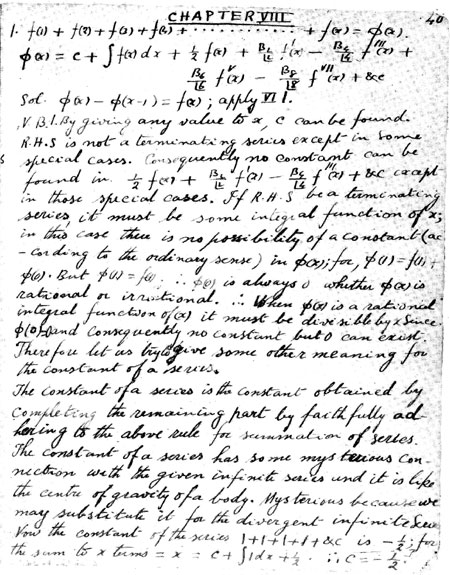 CHAPTER VIII 40
1. f(1) + f(2) + f(3) + f(4) + .......... + f(x) = φ(x).
φ(x) = c + ∫f(x) dx + ½ f(x) + B₂/⌊2 f'(x) - B₄/⌊4 f'''(x) +
B₆/⌊6 fⱽ(x) - B₈/⌊8 fⱽᴵᴵ(x) + &c
Sol. φ(x) - φ(x-1) = f(x); apply VI 1.
N.B. 1. By giving any value to x, c can be found.
R.H.S is not a terminating series except in some
special cases. Consequently no constant can be
found in ½ f(x) + B₂/⌊2 f'(x) - B₄/⌊4 f'''(x) + &c except
in those special cases. If R.H.S be a terminating
series, it must be some integral function of x;
in this case there is no possibility of a constant (ac
-cording to the ordinary sense) in φ(x); for, φ(1) = f(1) +
φ(0). But φ(1) = f(1); ∴ φ(0) is always 0 whether φ(x) is
rational or irrational. ∴ When φ(x) is a rational
integral function of (x) it must be divisible by x since
φ(0)=0 and consequently no constant but 0 can exist.
Therefore let us try to give some other meaning for
the constant of a series.
The constant of a series is the constant obtained by
completing the remaining part by faithfully ad-
hering to the above rule for summation of series.
The constant of a series has some mysterious con-
nection with the given infinite series and it is like
the centre of gravity of a body. Mysterious because we
may substitute it for the divergent infinite series.
Now the constant of the series 1+1+1+1+&c is -½; for
the sum to x terms = x = c + ∫1dx + ½. ∴ c = -½.